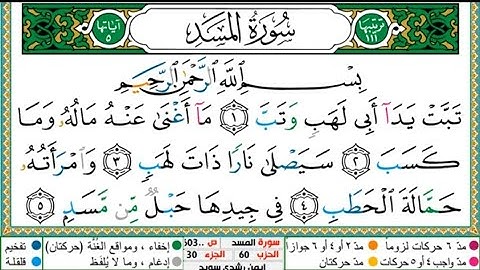 ترتيبها ١١١ سُورَةُ المَسَدِ آياتها ٥
بِسْمِ ٱللَّهِ ٱلرَّحْمَٰنِ ٱلرَّحِيمِ
تَبَّتْ يَدَآ أَبِي لَهَبٍ وَتَبَّ ١ مَآ أَغْنَىٰ عَنْهُ مَالُهُۥ وَمَا
كَسَبَ ٢ سَيَصْلَىٰ نَارًا ذَاتَ لَهَبٍ ٣ وَٱمْرَأَتُهُۥ
حَمَّالَةَ ٱلْحَطَبِ ٤ فِي جِيدِهَا حَبْلٌ مِّن مَّسَدٍۭ ٥
مدّ ٦ حركات لزوماً مدّ ٢ أو ٤ أو ٦ جوازاً سورة المسد ص ..603 إخفاء، ومواقع الغُنَّة (حركتان) تفخيم
مدّ واجب ٤ أو ٥ حركات مدّ حركتان الحزب 60 الجزء 30 إدغام، وما لا يُلفَظ قلقلة
أيمن رشدي سويد